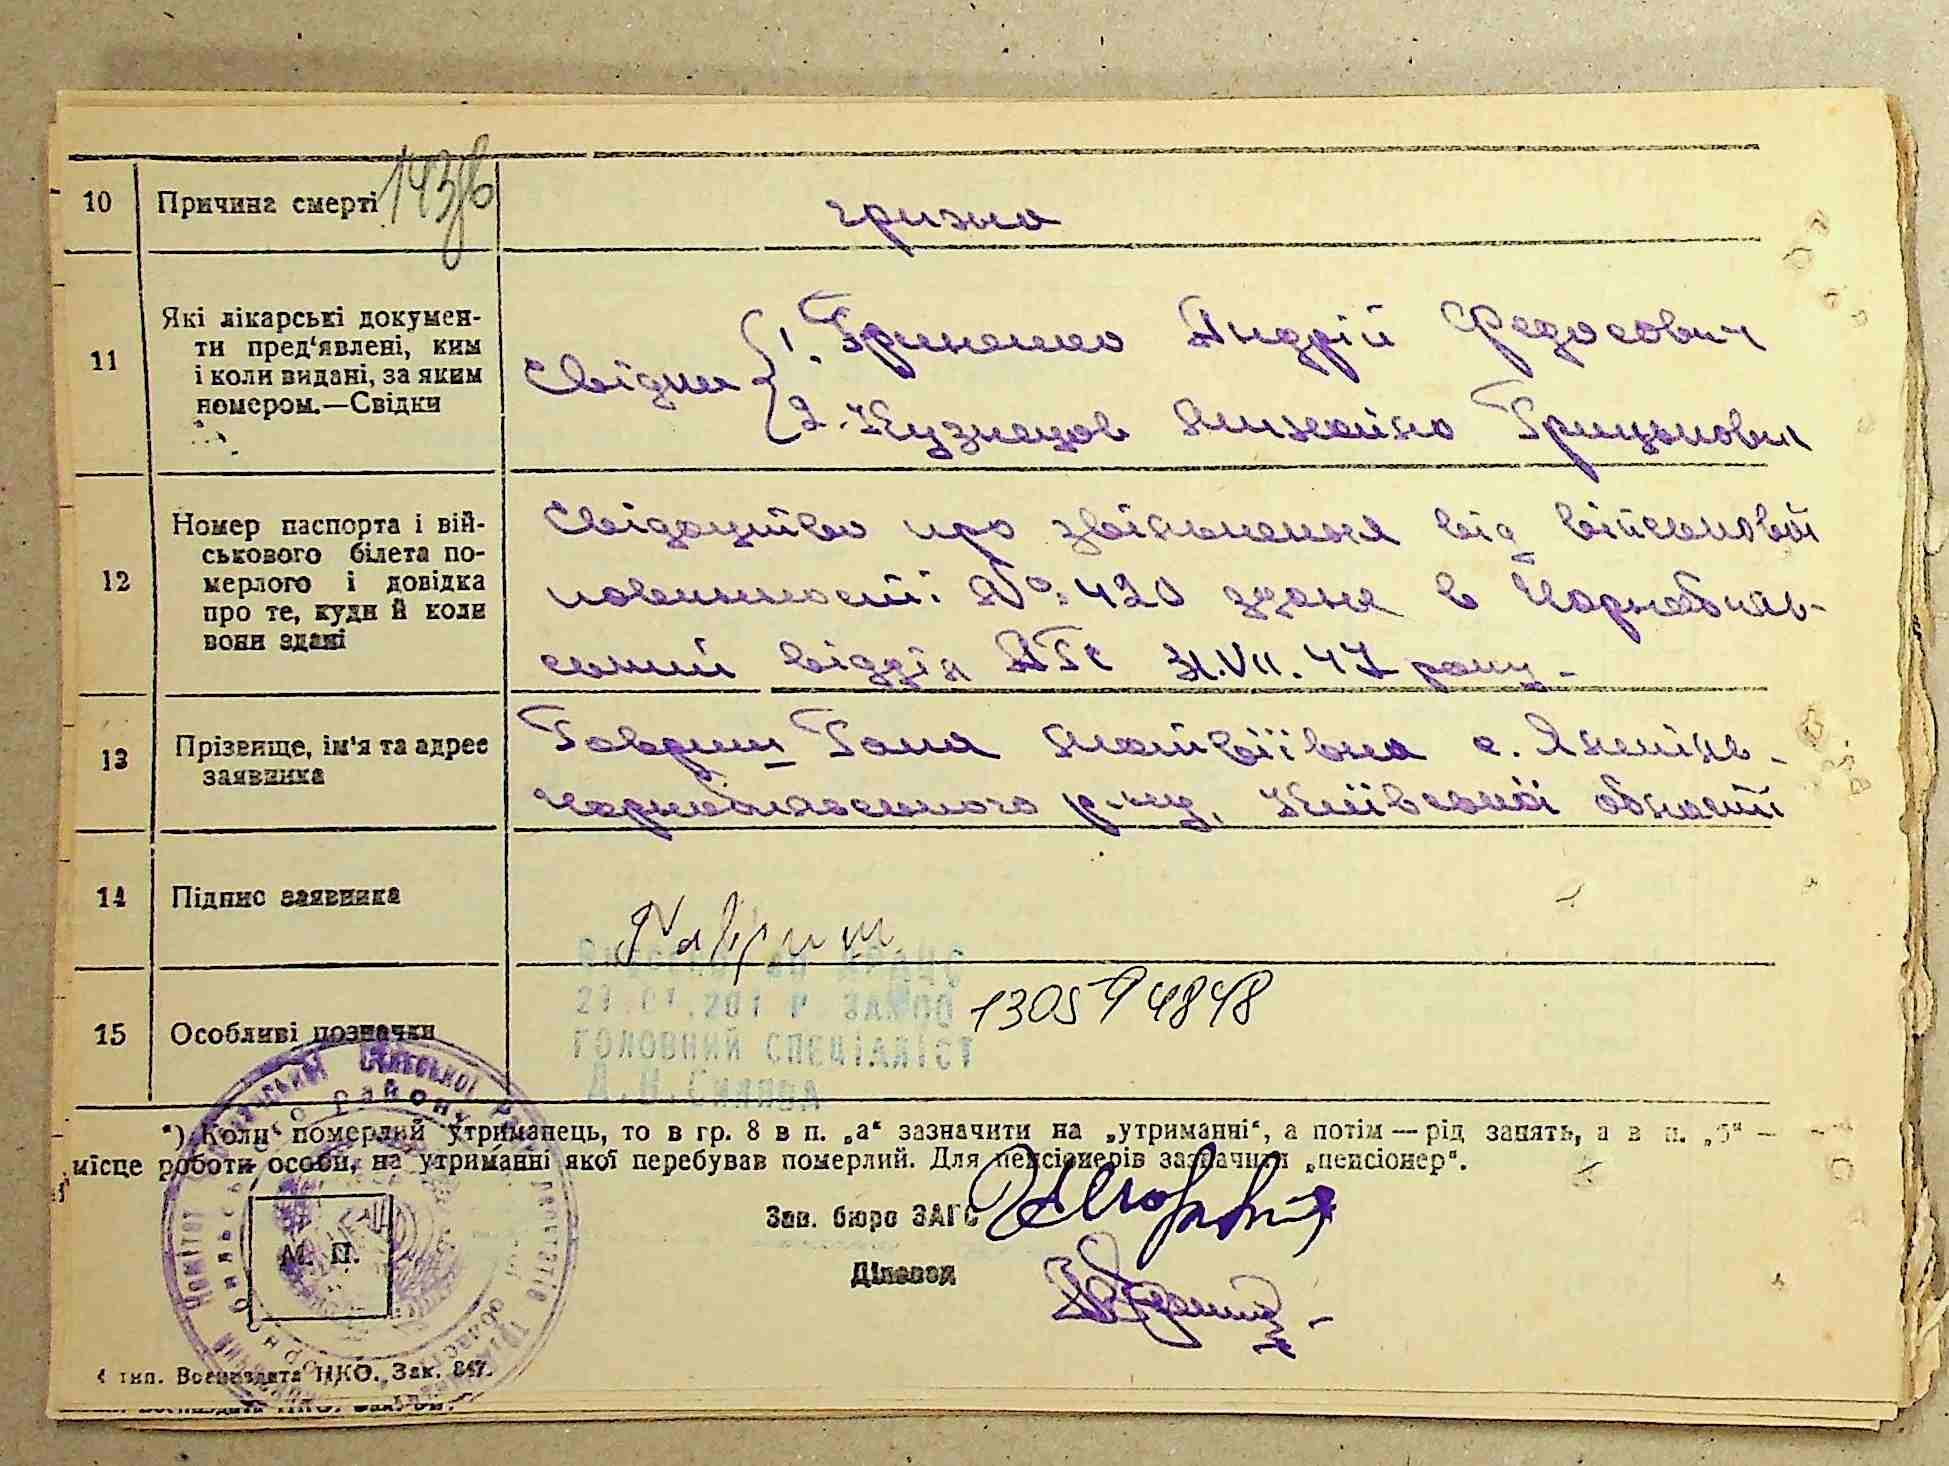 10 Причина смерті 143/б грижа
11 Які лікарські докумен-
ти пред'явлені, ким
і коли видані, за яким
номером.—Свідки
Свідки 1. Гриненко Андрій Федосович
2. Кузнецов Михайло Грицькович
12 Номер паспорта і вій-
ськового білета по-
мерлого і довідка
про те, куди й коли
вони здані
Свідоцтво про звільнення від військової
повинності № 420 здане в Чорнобаїв-
ський відділ АГС 31.VII.47 року.
13 Прізвище, ім'я та адрес
заявника
Гавриш Ганя Матвіївна с.
Чорнобаївського р-ну, Київської області
14 Підпис заявника Гавриш
15 Особливі позначки 130594848
ГОЛОВНИЙ СПЕЦІАЛІСТ
*) Коли померлий утриманець, то в гр. 8 в п. „а“ зазначити на „утриманні“, а потім — рід занять, а в п. „б“ —
місце роботи особи, на утриманні якої перебував померлий. Для пенсіонерів зазначити „пенсіонер“.
Зав. бюро ЗАГС
Діловод
М. П.
4 тип. Воениздата НКО. Зак. 847.